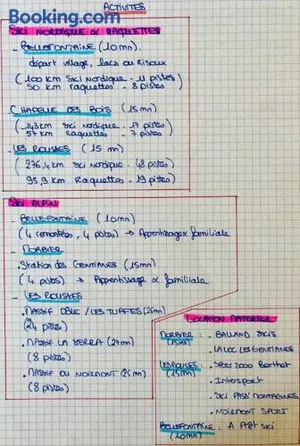 ACTIVITÉS
Booking.com
SKI NORDIQUE OU RAQUETTES
- BELLEFONTAINE (10mn)
départ village, lacs ou Risoux
(100 km Ski nordique - 11 pistes
50 km raquettes - 8 pistes)
- CHAPELLE DES BOIS (15mn)
km Ski nordique - 17 pistes
57 km Raquettes - 7 pistes)
- LES ROUSSES (15 mn)
(276,4 km Ski nordique - 48 pistes
95,9 km Raquettes - 19 pistes)
SKI ALPIN
- BELLEFONTAINE (10mn)
(4 remontées, 4 pistes) → Apprentissage familiale
- MORBIER
. Station des GENTIANES (15mn)
(4 pistes) → Apprentissage familiale
- LES ROUSSES
. MASSIF DÔLE / LES TUFFES (25mn)
(24 pistes)
. MASSIF LA SERRA (27mn)
(8 pistes)
. MASSIF DU NOIRMONT (25mn)
(8 pistes)
LOCATION MATERIEL
MORBIER : . BALLAND SKIS
(15mn) . LALOC LES GENTIANES
LES ROUSSES : . SPORT 2000 Berthet
(15mn) . Intersport
. SKI PASS MONTAGNES
. NOIRMONT SPORT
BELLEFONTAINE : . A FORT SKI
(10mn)